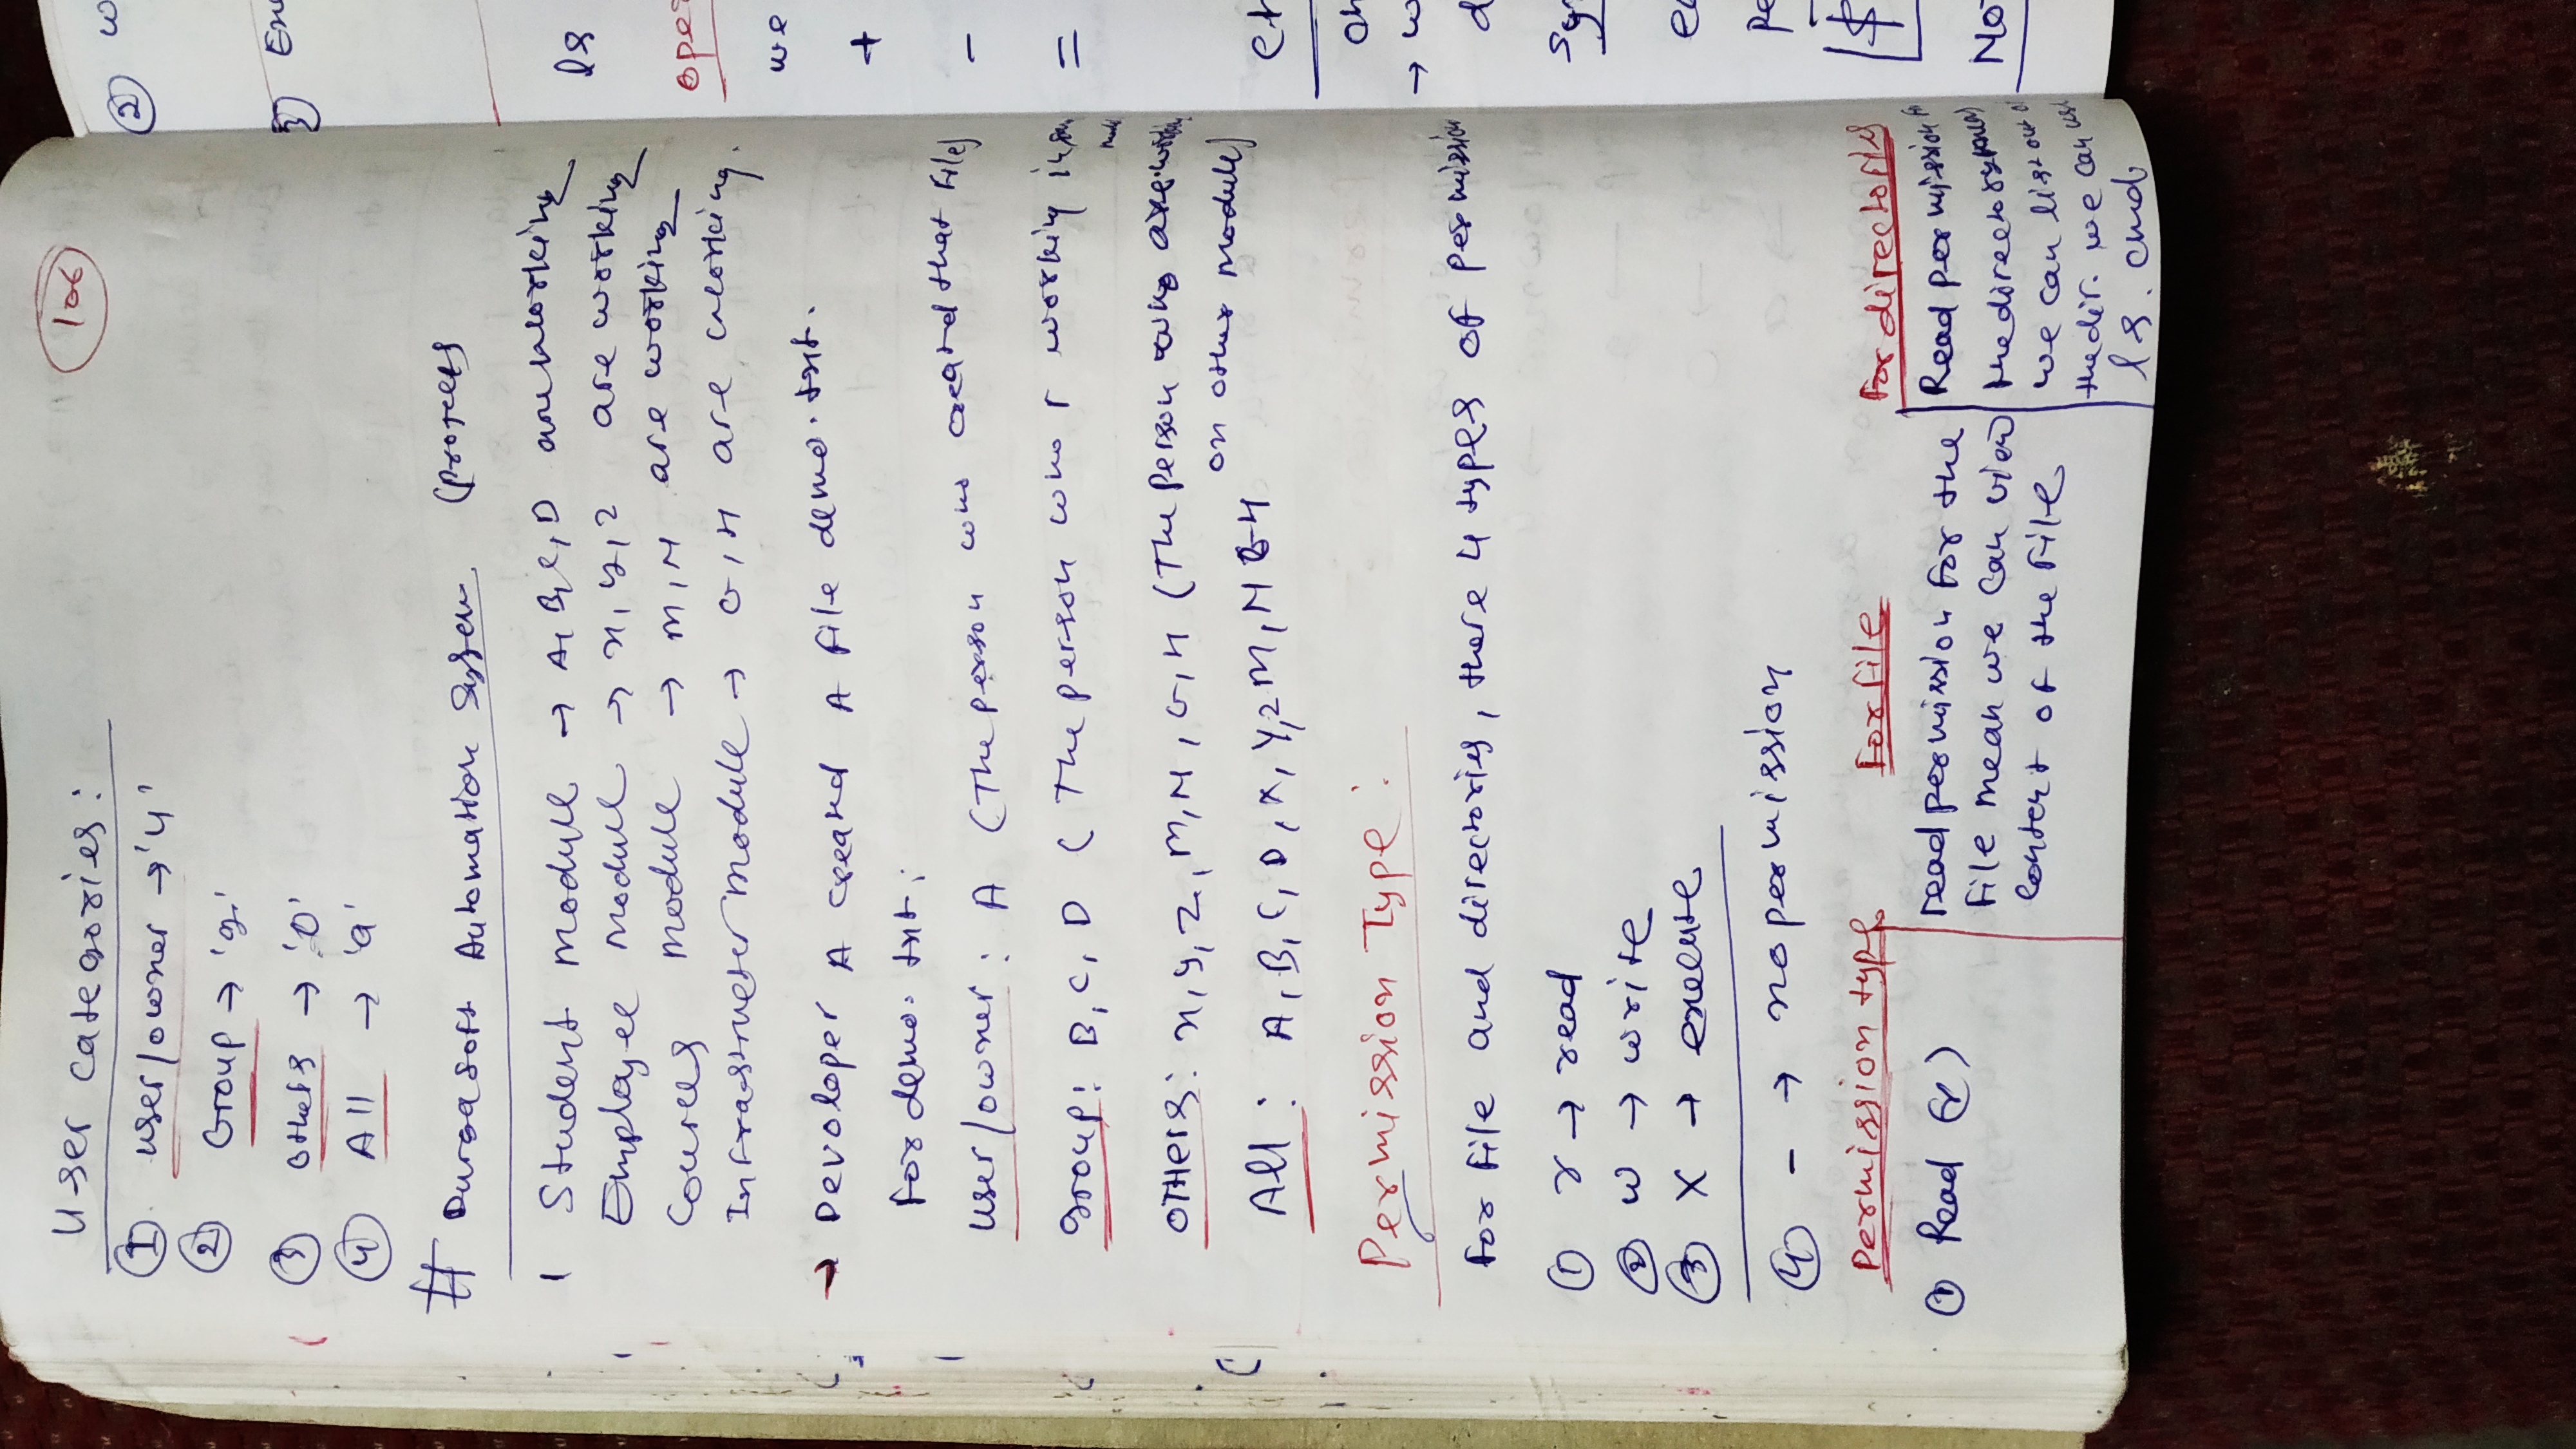 106
User categories:
① user/owner → 'u'
② Group → 'g'
③ others → 'o'
④ All → 'a'
# Durgasoft Automation System (project
1 Student module → A, B, C, D are working
Employee module → x, y, z are working
Courses module → M, N are working
Infrastructer module → G, H are working.
→ Devoloper A created A file demo.txt.
For demo.txt;
user/owner: A (The person who created that file)
group: B, C, D (The person who r working in same
modul
OTHers: x, y, z, M, N, G, H (The person who are working
on other module)
All: A, B, C, D, X, Y, Z M, N G H
Permission Type:
For file and directories, there 4 types of permission
① r → read
② w → write
③ X → execute
④ - → no permission
Permission type For file For directories
① Read (r) read permission for the Read permission for
file mean we can view the directory means
content of the file we can list out of
the dir. we can use
ls. cmd
②
③
ls
we
+
-
=
→ w
$